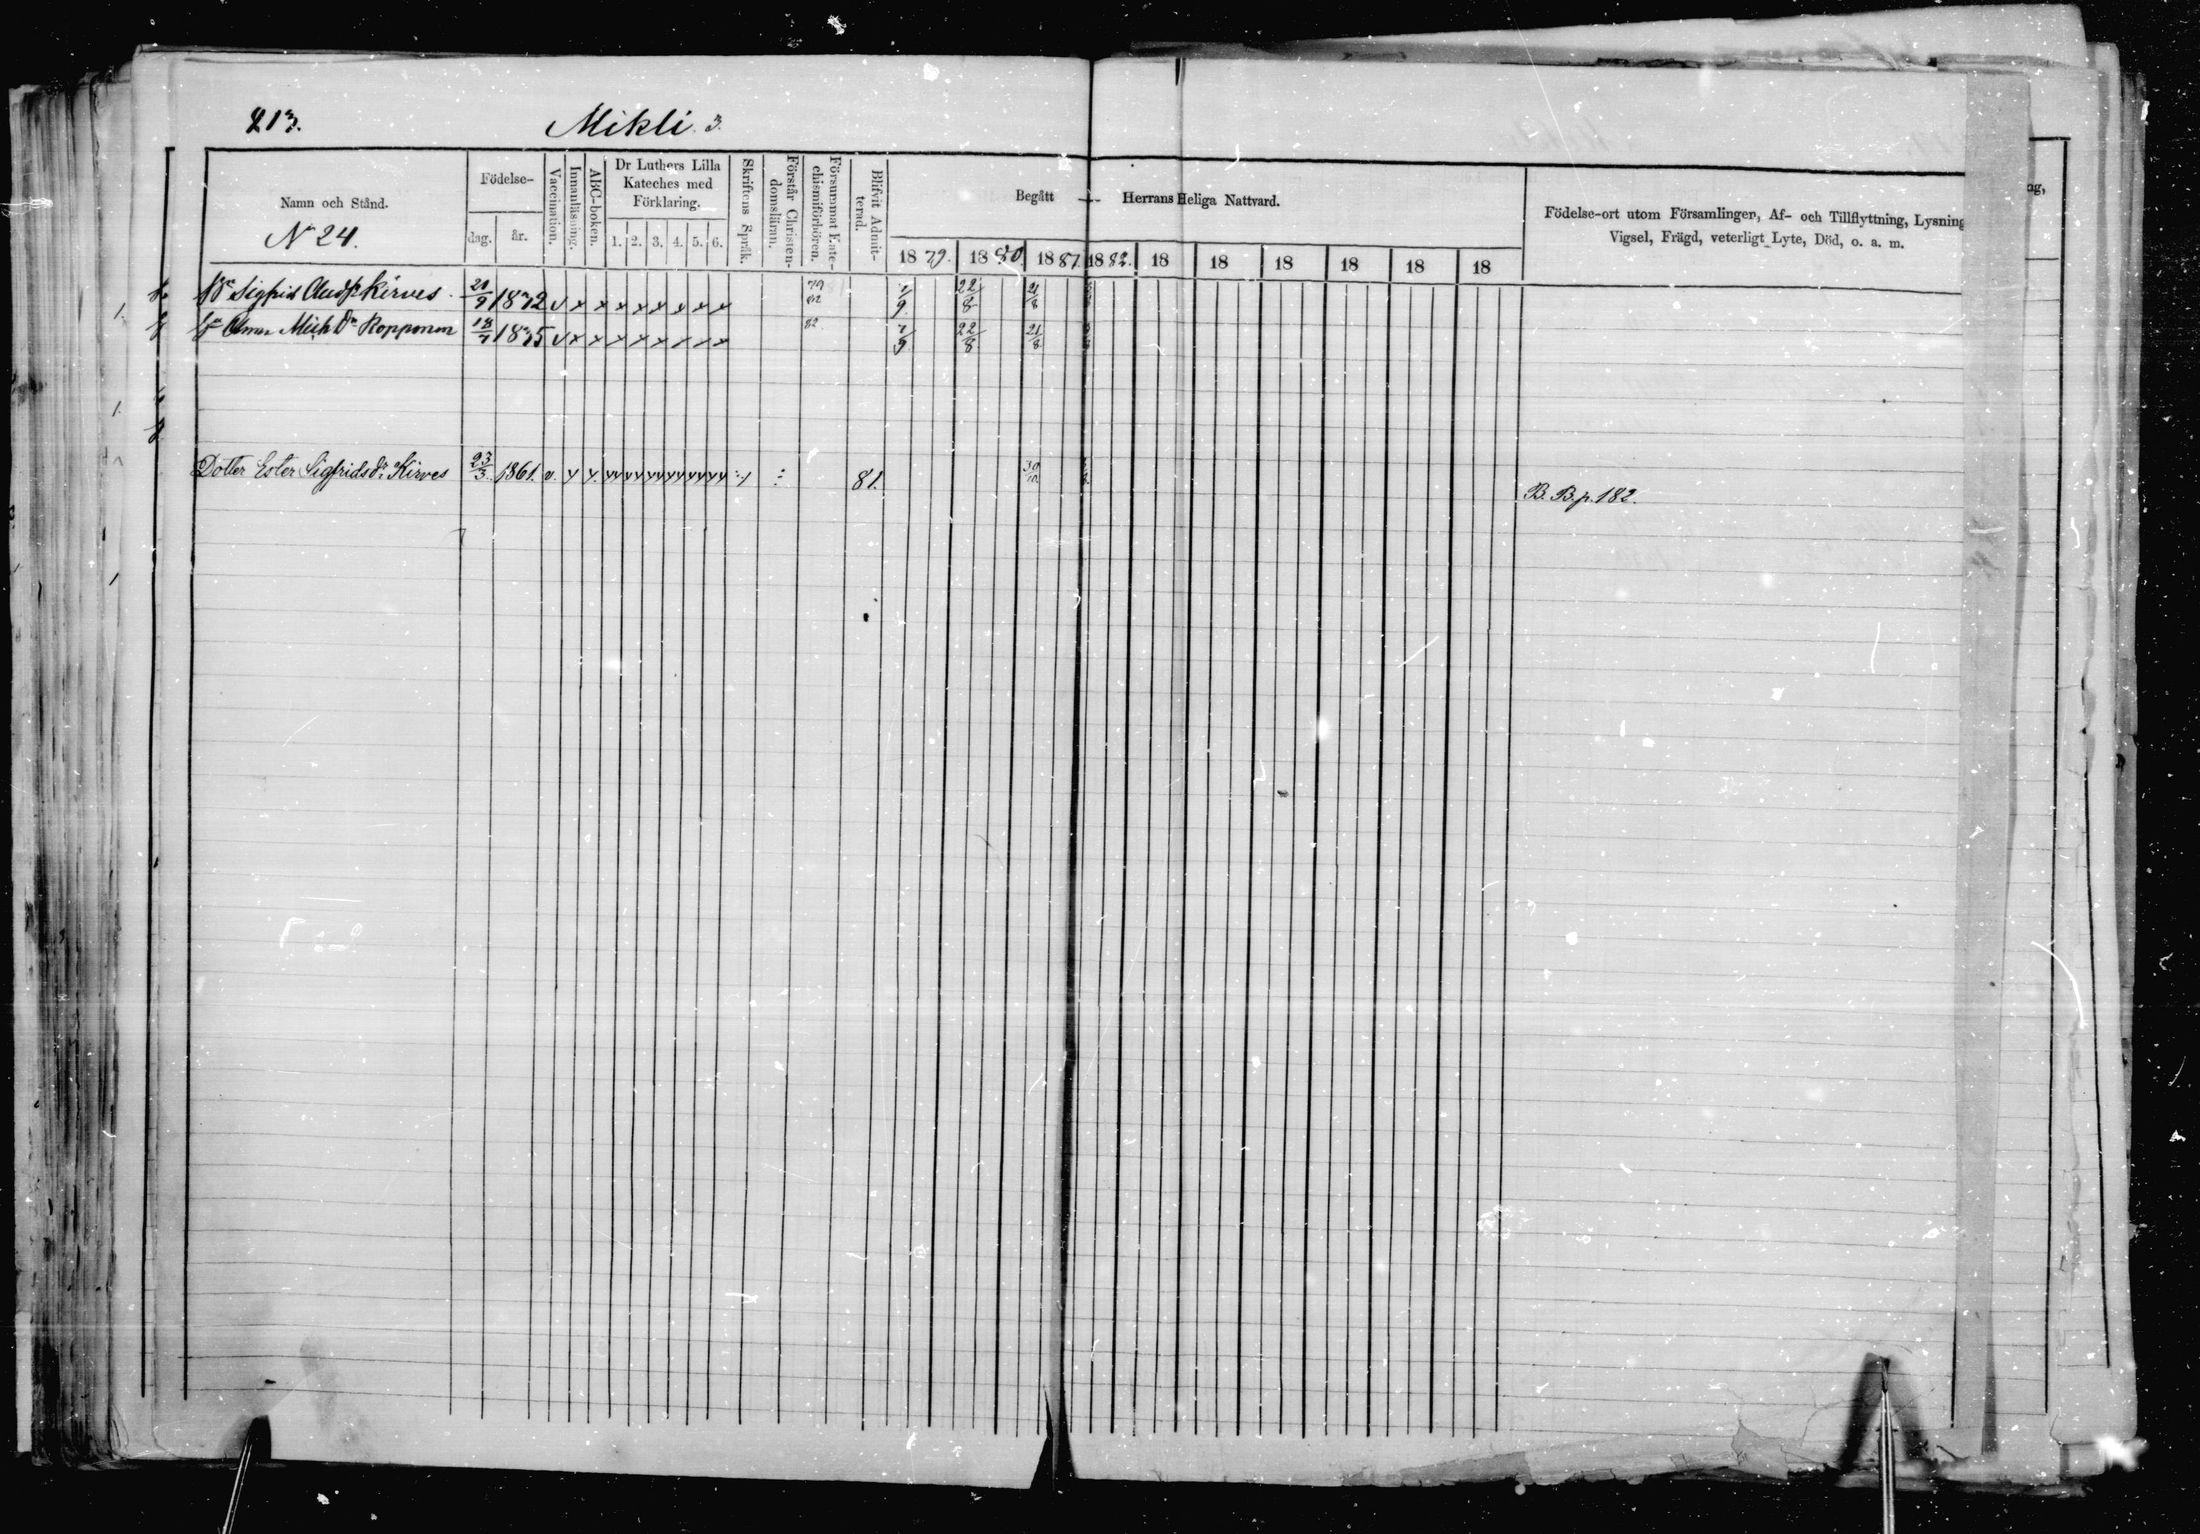 213.
Mikli. 3.
Namn och Stånd.
N 24.
Födelse-
dag.
år.
Vaccination.
Innanläsning.
ABC-boken.
Dr Luthers Lilla
Kateches med
Förklaring.
1. 2. 3. 4. 5. 6.
Skriftens Språk.
Förstår Christen-
domsläran.
Försummat Kate-
chismiförhören.
Blifvit Admit-
terad.
Begått Herrans Heliga Nattvard.
18 79. 18 80. 18 81. 18 82. 18 18 18 18 18 18
Födelse-ort utom Församlingen, Af- och Tillflyttning, Lysning
Vigsel, Frägd, veterligt Lyte, Död, o. a. m.
ng,
Sigfrid Kirves 21/9 22/8 21/8
Mich Dr Ropponen 18/7 1835 82 22/8 21/8
Dotter Ester Sigfridsdr Kirves 23/3 1861. v. 81. 30/10
B. B. p. 182.